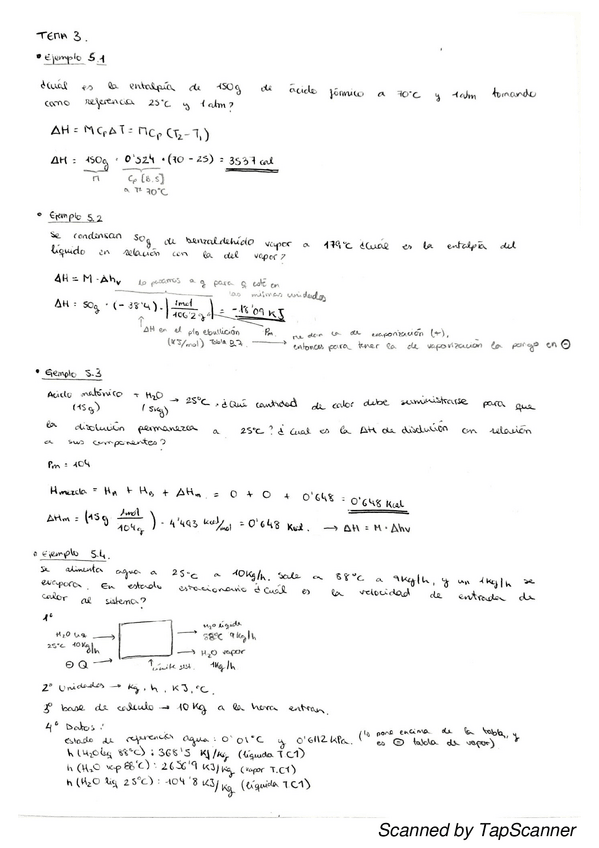 TEMA 3.
• Ejemplo 5.1
¿Cuál es la entalpía de 150g de ácido fórmico a 70°C y 1atm tomando
como referencia 25°C y 1atm?
ΔH = M Cp ΔT = M Cp (T2 - T1)
ΔH = 150g · 0'524 · (70 - 25) = 3537 cal
M Cp [8.5]
a 70°C
• Ejemplo 5.2
Se condensan 50g de benzaldehído vapor a 179°C ¿Cuál es la entalpía del
líquido en relación con la del vapor?
ΔH = M · Δhv lo pasamos a g para q esté en
las mismas unidades
ΔH = 50g · (-38'4) · | 1mol / 106'2 g | = -18'09 KJ
ΔH en el pto ebullición Pm
(KJ/mol) Tabla B.7 → me dan la de evaporización (+),
entonces para tener la de vaporización la pongo en ⊖
• Ejemplo 5.3
Ácido malónico + H2O → 25°C. ¿Qué cantidad de calor debe suministrarse para que
(15g) (5kg)
la disolución permanezca a 25°C? ¿cual es la ΔH de disolución con relación
a sus componentes?
Pm = 104
Hmezcla = HA + HB + ΔHm = 0 + 0 + 0'648 = 0'648 Kcal
ΔHm = (15g 1mol / 104g) · 4'493 kcal/mol = 0'648 Kcal. → ΔH = M · Δhv
• Ejemplo 5.4.
Se alimenta agua a 25°C a 10Kg/h. Sale a 88°C a 9Kg/h, y un 1Kg/h se
evapora. En estado estacionario ¿cuál es la velocidad de entrada de
calor al sistema?
1º
H2O liq → → H2O líquida
25°C 10Kg/h 88°C 9Kg/h
⊖ Q → → H2O vapor
límite sist. 1Kg/h
2º Unidades → Kg, h, KJ, °C.
3º base de calculo → 10 Kg a la hora entran.
4º Datos:
estado de referencias agua: 0'01°C y 0'6112 kPa. (lo pone encima de la tabla, y
es ⊖ tabla de vapor)
h (H2O liq 88°C): 368'5 KJ/Kg (líquida T.C1)
h (H2O vap 88°C): 2656'9 KJ/Kg (vapor T.C1)
h (H2O liq 25°C): 104'8 KJ/Kg (líquida T.C1)
Scanned by TapScanner